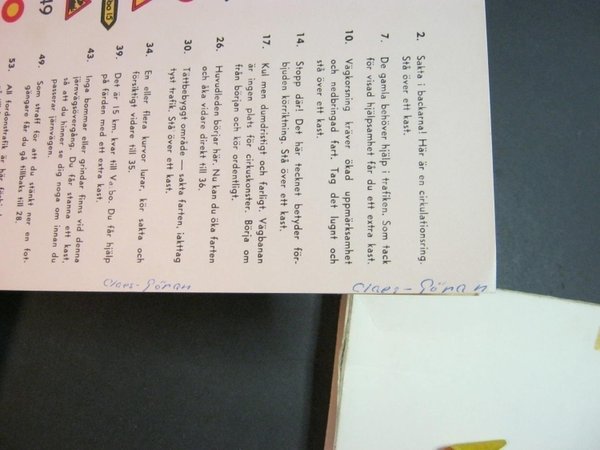 2. Sakta i backarna! Här är en cirkulationsring.
Stå över ett kast.
7. De gamla behöver hjälp i trafiken. Som tack
för visad hjälpsamhet får du ett extra kast.
10. Vägkorsning kräver ökad uppmärksamhet
och nedbringad fart. Tag det lugnt och
stå över ett kast.
14. Stopp där! Det här tecknet betyder för-
bjuden körriktning. Stå över ett kast.
17. Kul men dumdristigt och farligt. Vägbanan
är ingen plats för cirkuskonster. Börja om
från början och kör ordentligt.
26. Huvudleden börjar här. Nu kan du öka farten
och åka vidare direkt till 36.
30. Tättbebyggt område — sakta farten, iakttag
tyst trafik. Stå över ett kast.
34. En eller flera kurvor lurar, kör sakta och
försiktigt vidare till 35.
39. Det är 15 km. kvar till Du får hjälp
på färden med ett extra kast.
43. Inga bommar eller grindar finns vid denna
järnvägsövergång. Du får stanna ett kast
så att du hinner se dig noga om innan du
passerar järnvägen.
49. Som straff för att du stänkt ner en fot-
gängare får du gå tillbaks till 28.
53. All fordonstrafik är här
bo 15
49
Claes-Göran
Claes-Göran